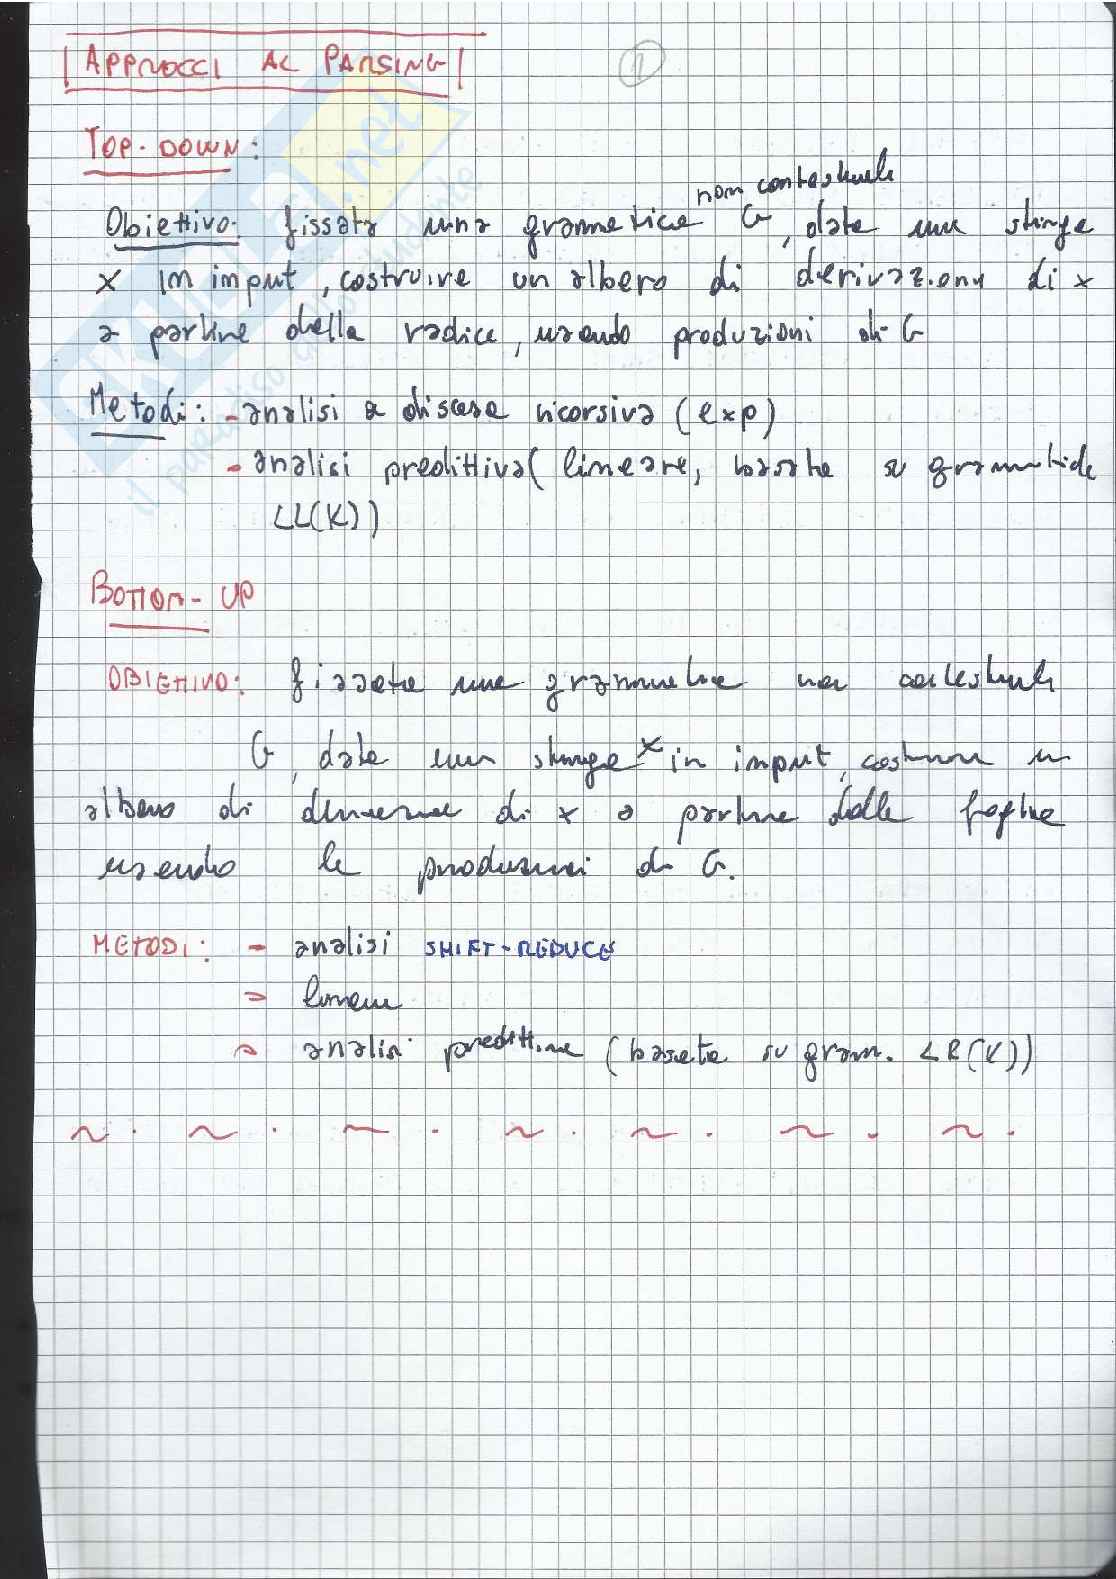 APPROCCI AL PARSING
1
TOP-DOWN:
non contestuale
Obiettivo: fissata una grammatica G, data una stringa
x in input, costruire un albero di derivazione di x
a partire dalla radice, usando produzioni di G
Metodi: - analisi a discesa ricorsiva (exp)
- analisi predittiva (lineare, basata su grammatiche
LL(K))
BOTTOM-UP
OBIETTIVO: fissata una grammatica non contestuale
G, data una stringa x in input, costruire un
albero di derivazione di x a partire dalle foglie
usando le produzioni di G.
METODI: - analisi SHIFT-REDUCE
- lineare
- analisi predittiva (basata su gram. LR(K))
~ . ~ . ~ . ~ . ~ . ~ . ~ .